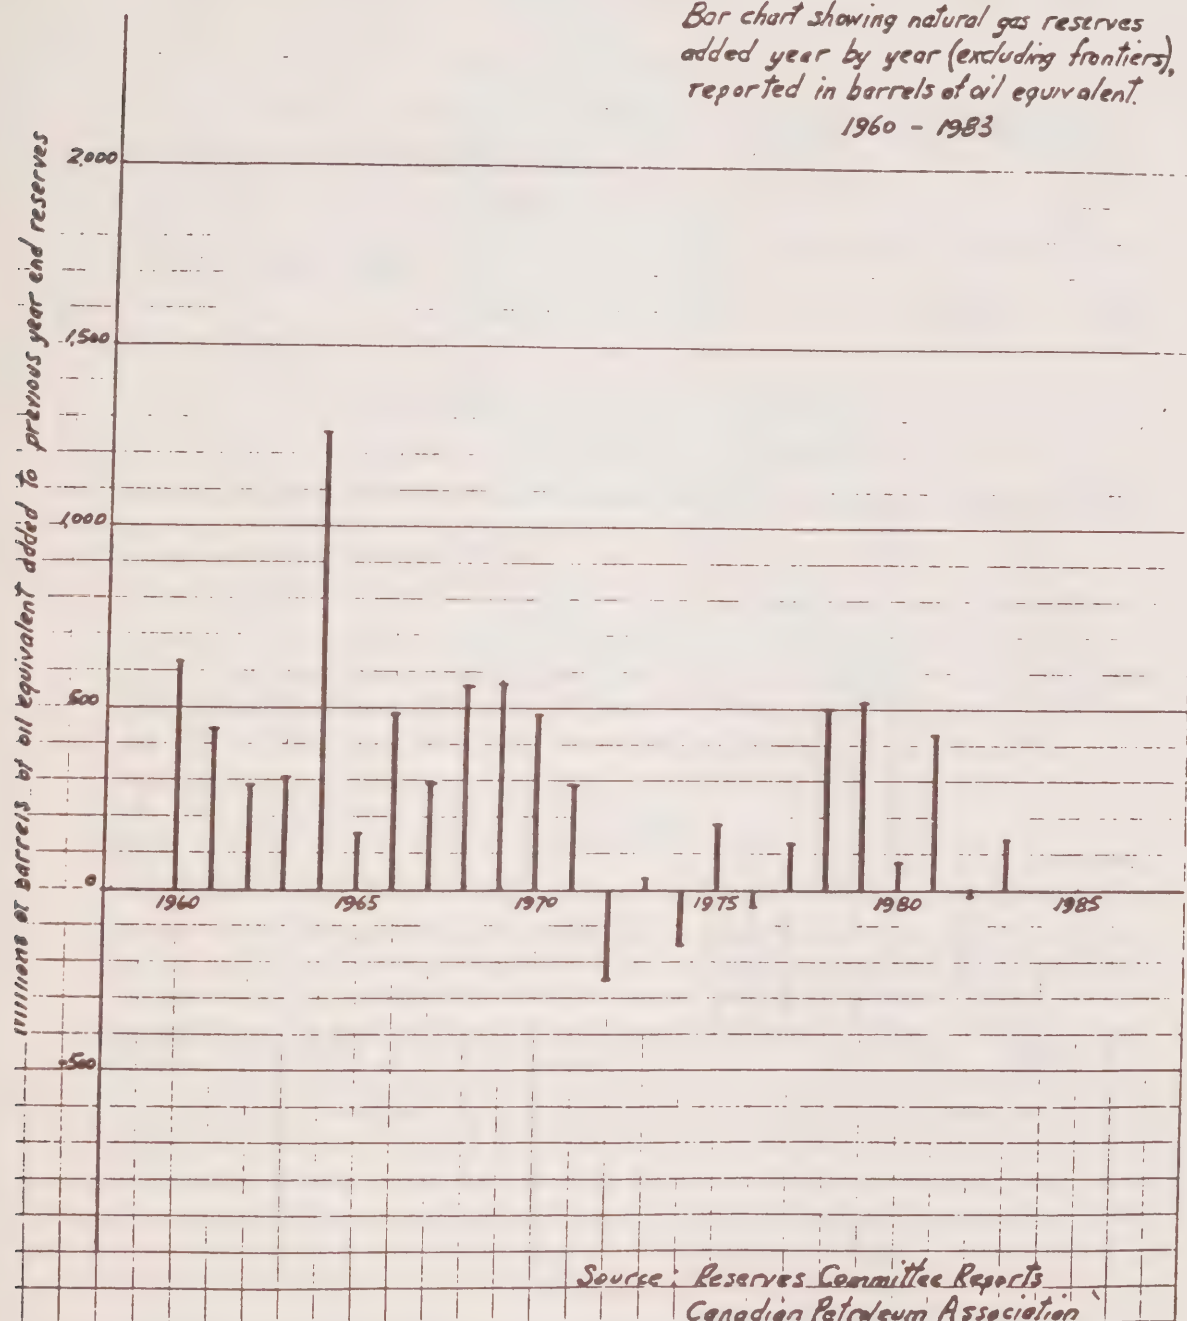 Bar chart showing natural gas reserves
added year by year (excluding frontiers),
reported in barrels of oil equivalent.
1960 - 1983
millions of barrels of oil equivalent added to previous year end reserves
2,000
1,500
1,000
500
0
-500
1960
1965
1970
1975
1980
1985
Source: Reserves Committee Reports
Canadian Petroleum Association